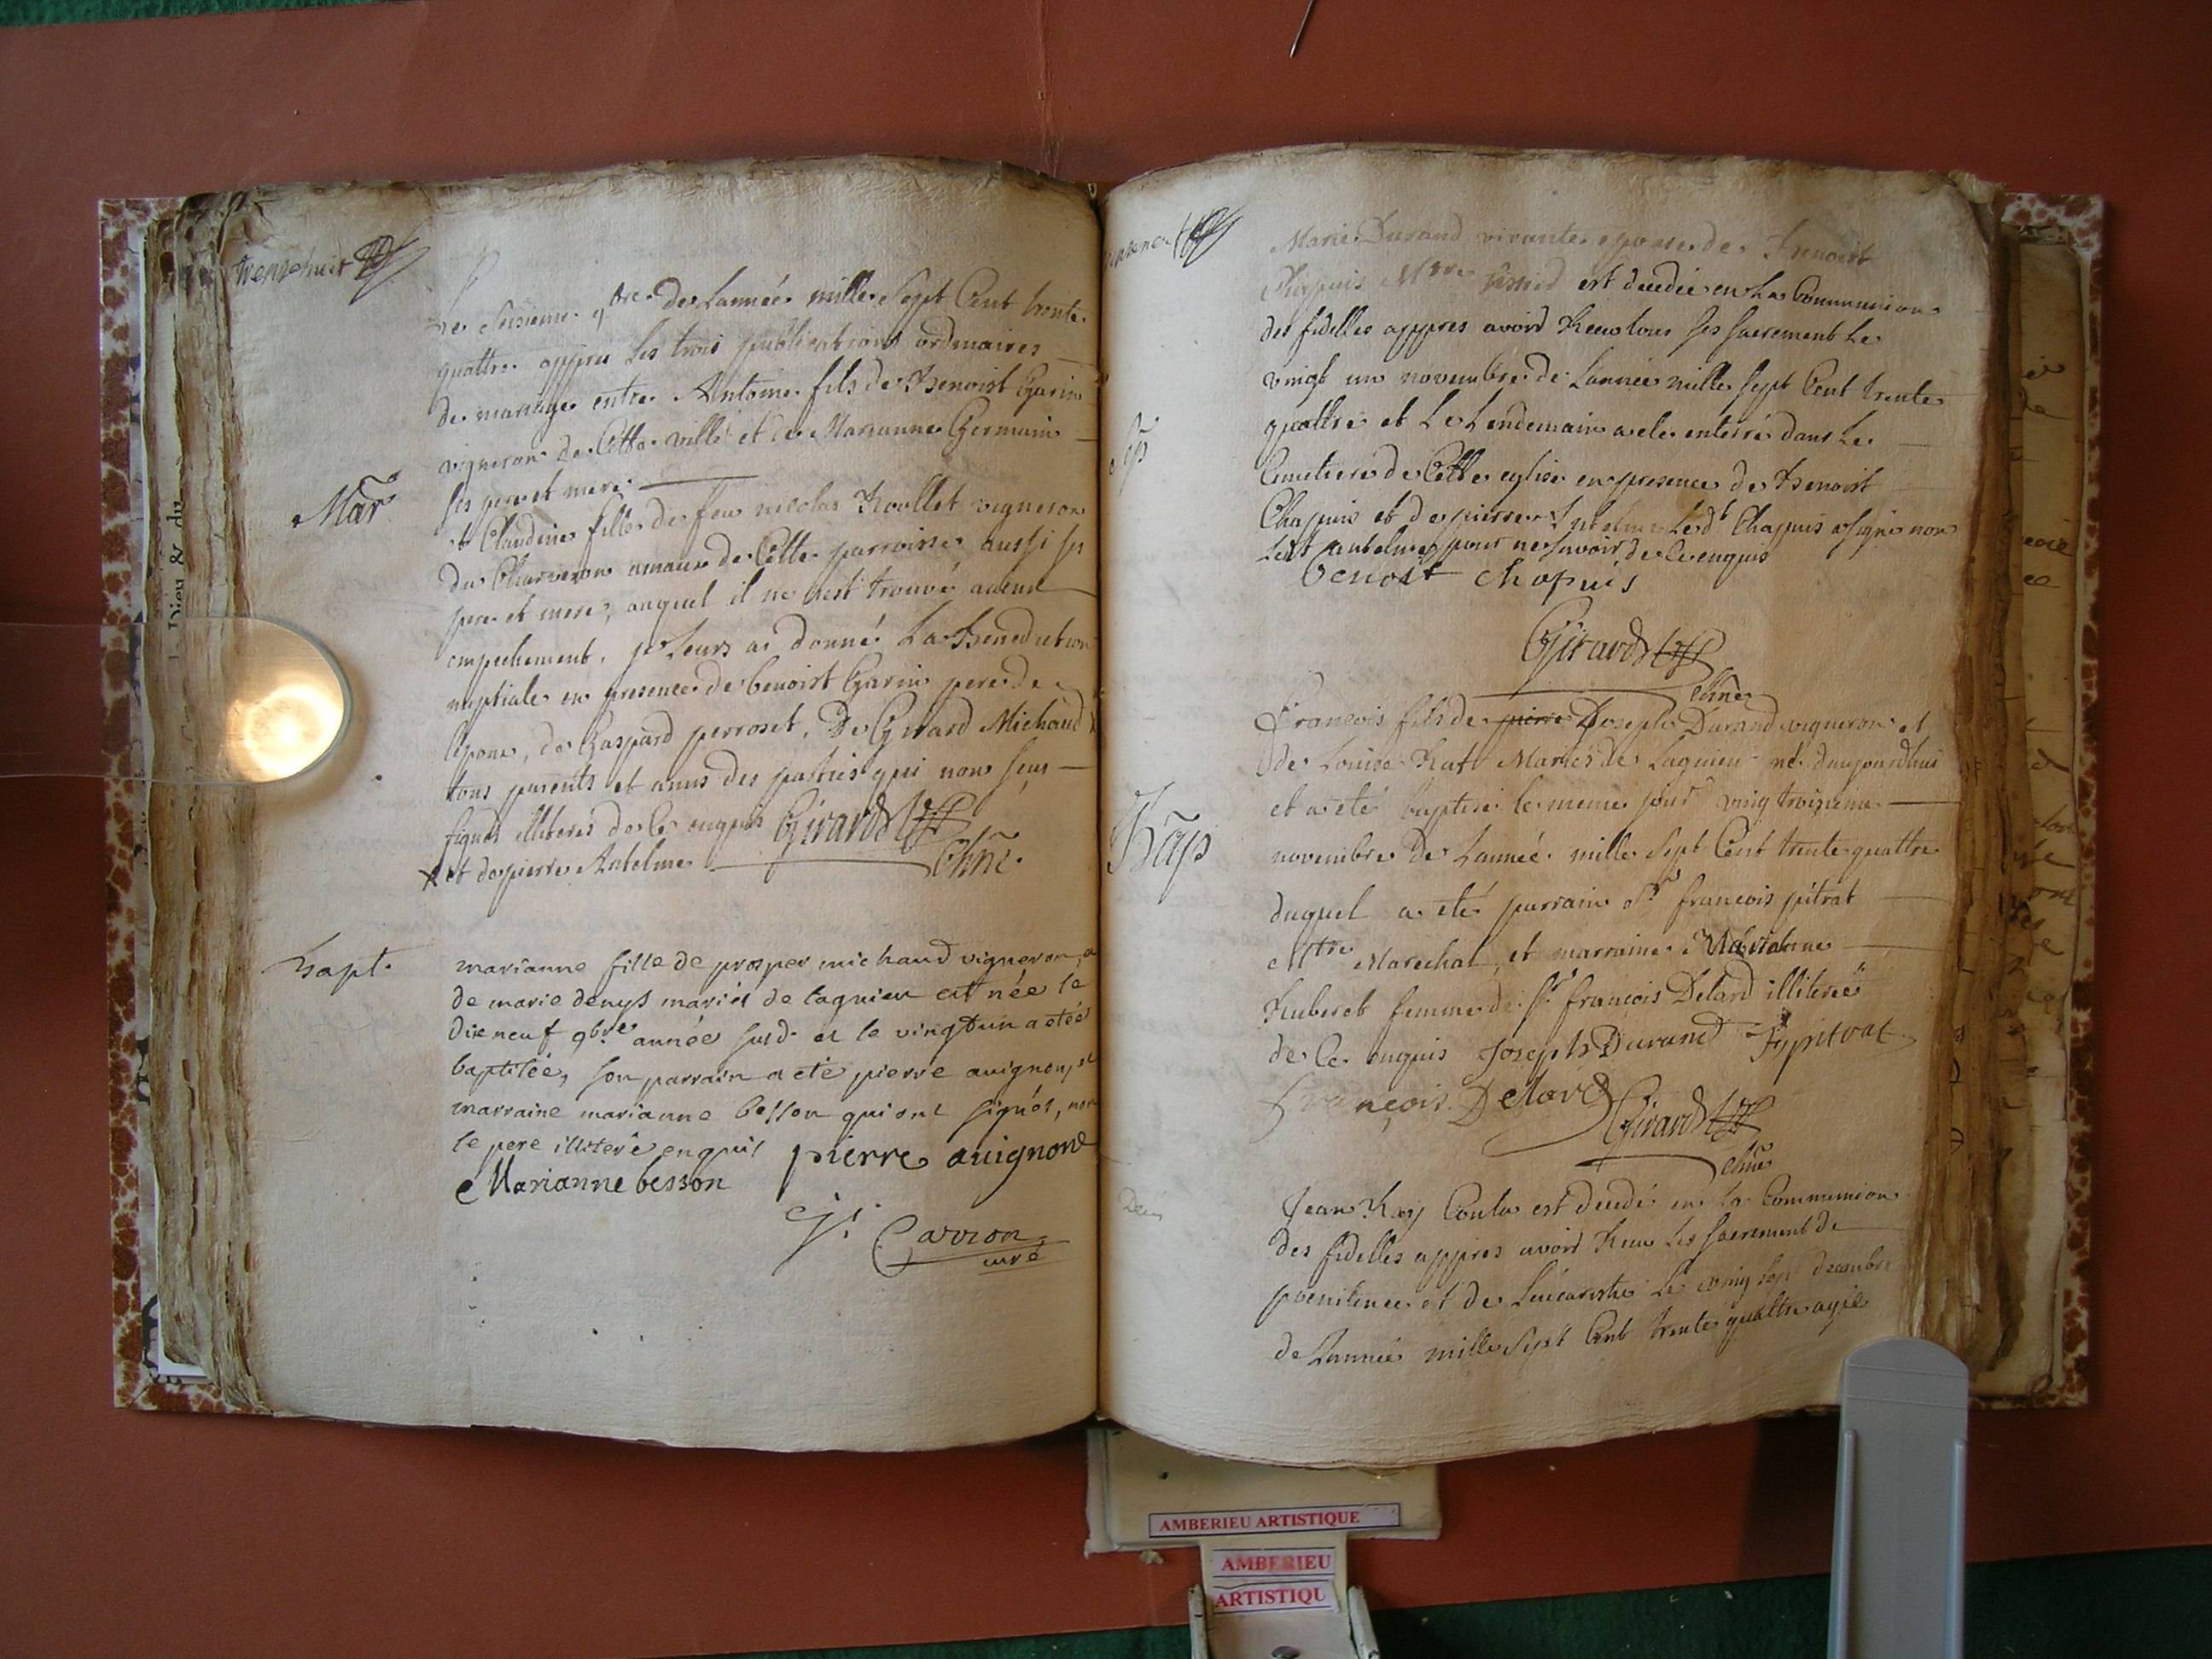 trente huit
Le seisieme 9bre de Lannée mille Sept Cent trente
quattre appres Les trois publications ordinaires
de mariage entre Antoine fils de Benoist Garin
vigneron de Cette ville et de Marianne Germain
ses pere et mere
Mar
et Claudine fille de feu nicolas Roullet vigneron
du Charveron amaure de Cette parroisse aussi ses
pere et mere, auquel il ne sest trouvé aucun
empechement, je Leurs ai donné La Benediction
nuptiale en presence de benoist Garin pere de
lepoux, de Gaspard perroset, De Girard Michaud X
tous parents et amis des parties qui nont seus
signés illiterés de Ce enquis Girard
X et de pierre Antelme Chne
bapt.
marianne fille de prosper michaud vigneron, et
de marie denys mariés de lagnieu est née le
dix neuf 9bre année susd. et le vingt un a etée
baptisée, son parrain a eté pierre auignon, et
marraine marianne besson qui ont signés, non
le pere illiteré enquis pierre auignon
Marianne besson
Carrion
curé
Marie Durand vivante epouse de Benoist
Chapuis Mtre est decedée en La Communion
des fidelles appres avoir Receu tous ses sacrement Le
vingt un novembre de Lannée mille sept Cent trente
quattre et Le Lendemain a ete enterré dans Le
Cimetiere de Cette eglise en presence de Benoist
Chapuis et de pierre Antelme Le dt Chapuis a signé non
Ledt antelme pour ne savoir de Ce enquis
benoist chapuis
Girard
Chne
François fils de pierre Joseph Durand vigneron et
de Louise Rat Mariés de Lagnieu né daujourdhui
et a eté baptisé le meme jour ving troisieme
Bap
novembre de Lannée mille Sept Cent trente quattre
duquel a eté parrain Sr françois pitrat
Mtre Marechal, et marraine
Huberet femme de Sr françois Delard illiterée
de Ce enquis Joseph Durand F pitrat
François Delard Girard
Chne
Dec
Jean Rey Conta est decedé en La Communion
des fidelles appres avoir Receu Les sacrement de
poenitence et de Leucaristie Le ving sept decembre
de Lannée mille Sept Cent trente quattre agé
Dieu & du
AMBERIEU ARTISTIQUE
AMBERIEU
ARTISTIQU